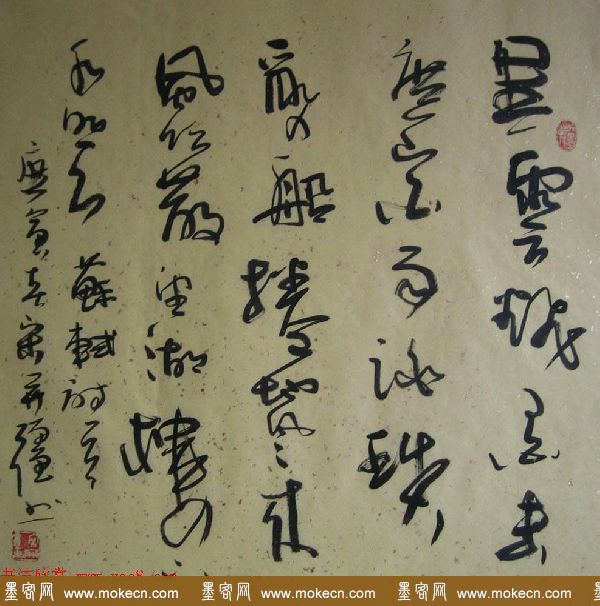 黑雲翻墨未
遮山白雨跳珠
亂入船捲地風來
風吹散望湖樓下
水如天 蘇軾詩
庚寅春宋
墨客网 www.mokecn.com 墨客网 www.mokecn.com 墨客网 www.mokecn.com